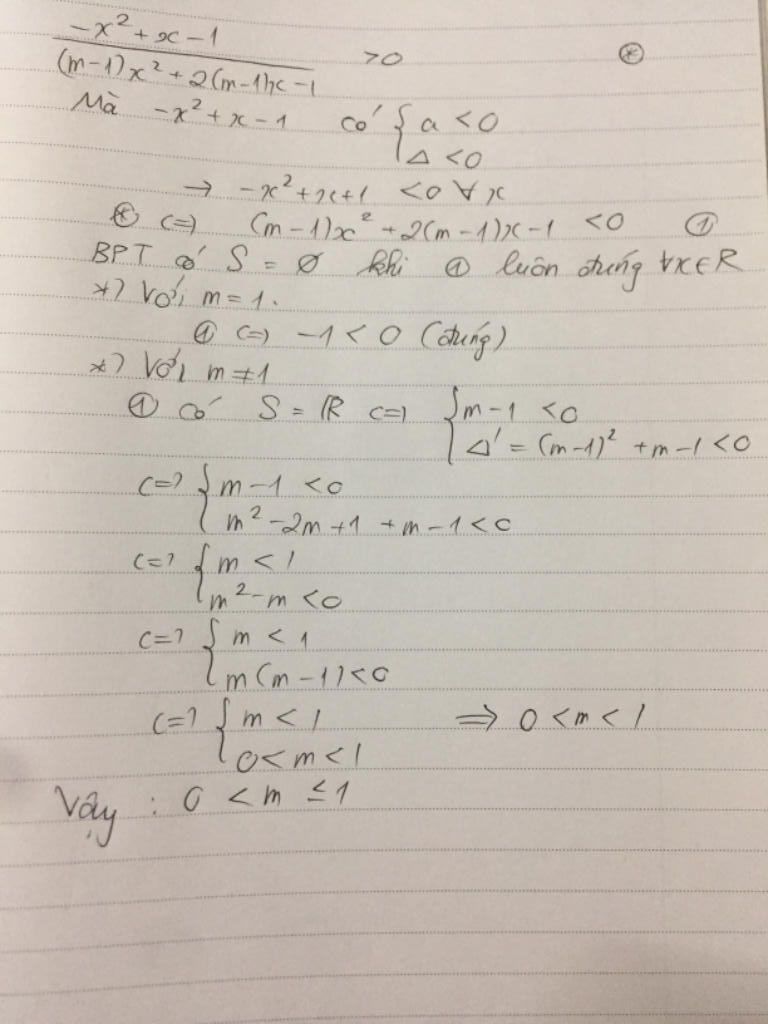 (-x² + x - 1)/((m-1)x² + 2(m-1)x - 1) > 0 (*)
Mà -x² + x - 1 có { a < 0
{ Δ < 0
→ -x² + x + 1 < 0 ∀ x
(*) <=> (m-1)x² + 2(m-1)x - 1 < 0 ①
BPT có S = ∅ khi ① luôn đúng ∀x∈R
*) Với m = 1.
① <=> -1 < 0 (đúng)
*) Với m ≠ 1
① có S = ℝ <=> { m - 1 < 0
{ Δ' = (m-1)² + m - 1 < 0
<=> { m - 1 < 0
{ m² - 2m + 1 + m - 1 < 0
<=> { m < 1
{ m² - m < 0
<=> { m < 1
{ m(m-1) < 0
<=> { m < 1 ⟹ 0 < m < 1
{ 0 < m < 1
Vậy : 0 < m ≤ 1